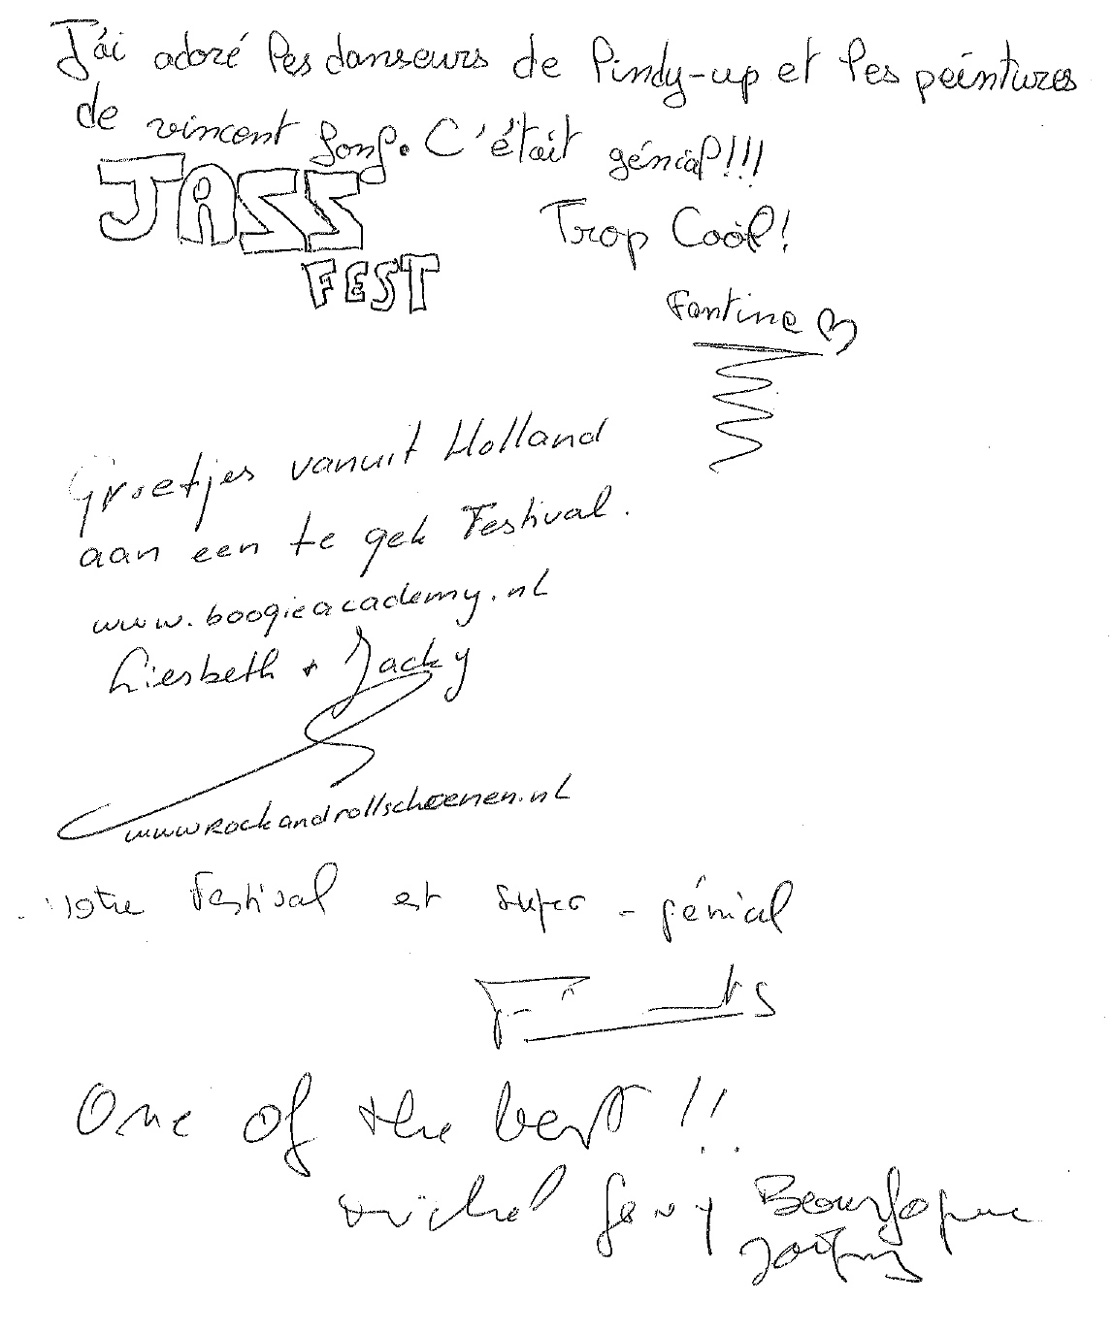 J'ai adoré les danseurs de Pindy-up et les peintures
de vincent Gong. C'était génial!!!
JASS
FEST
Trop Cool!
Fantine
Groetjes vanuit Holland
aan een te gek Festival.
www.boogieacademy.nl
Liesbeth + Jacky
www.rockandrollschoenen.nl
votre Festival est super-génial
One of the best !!
michel